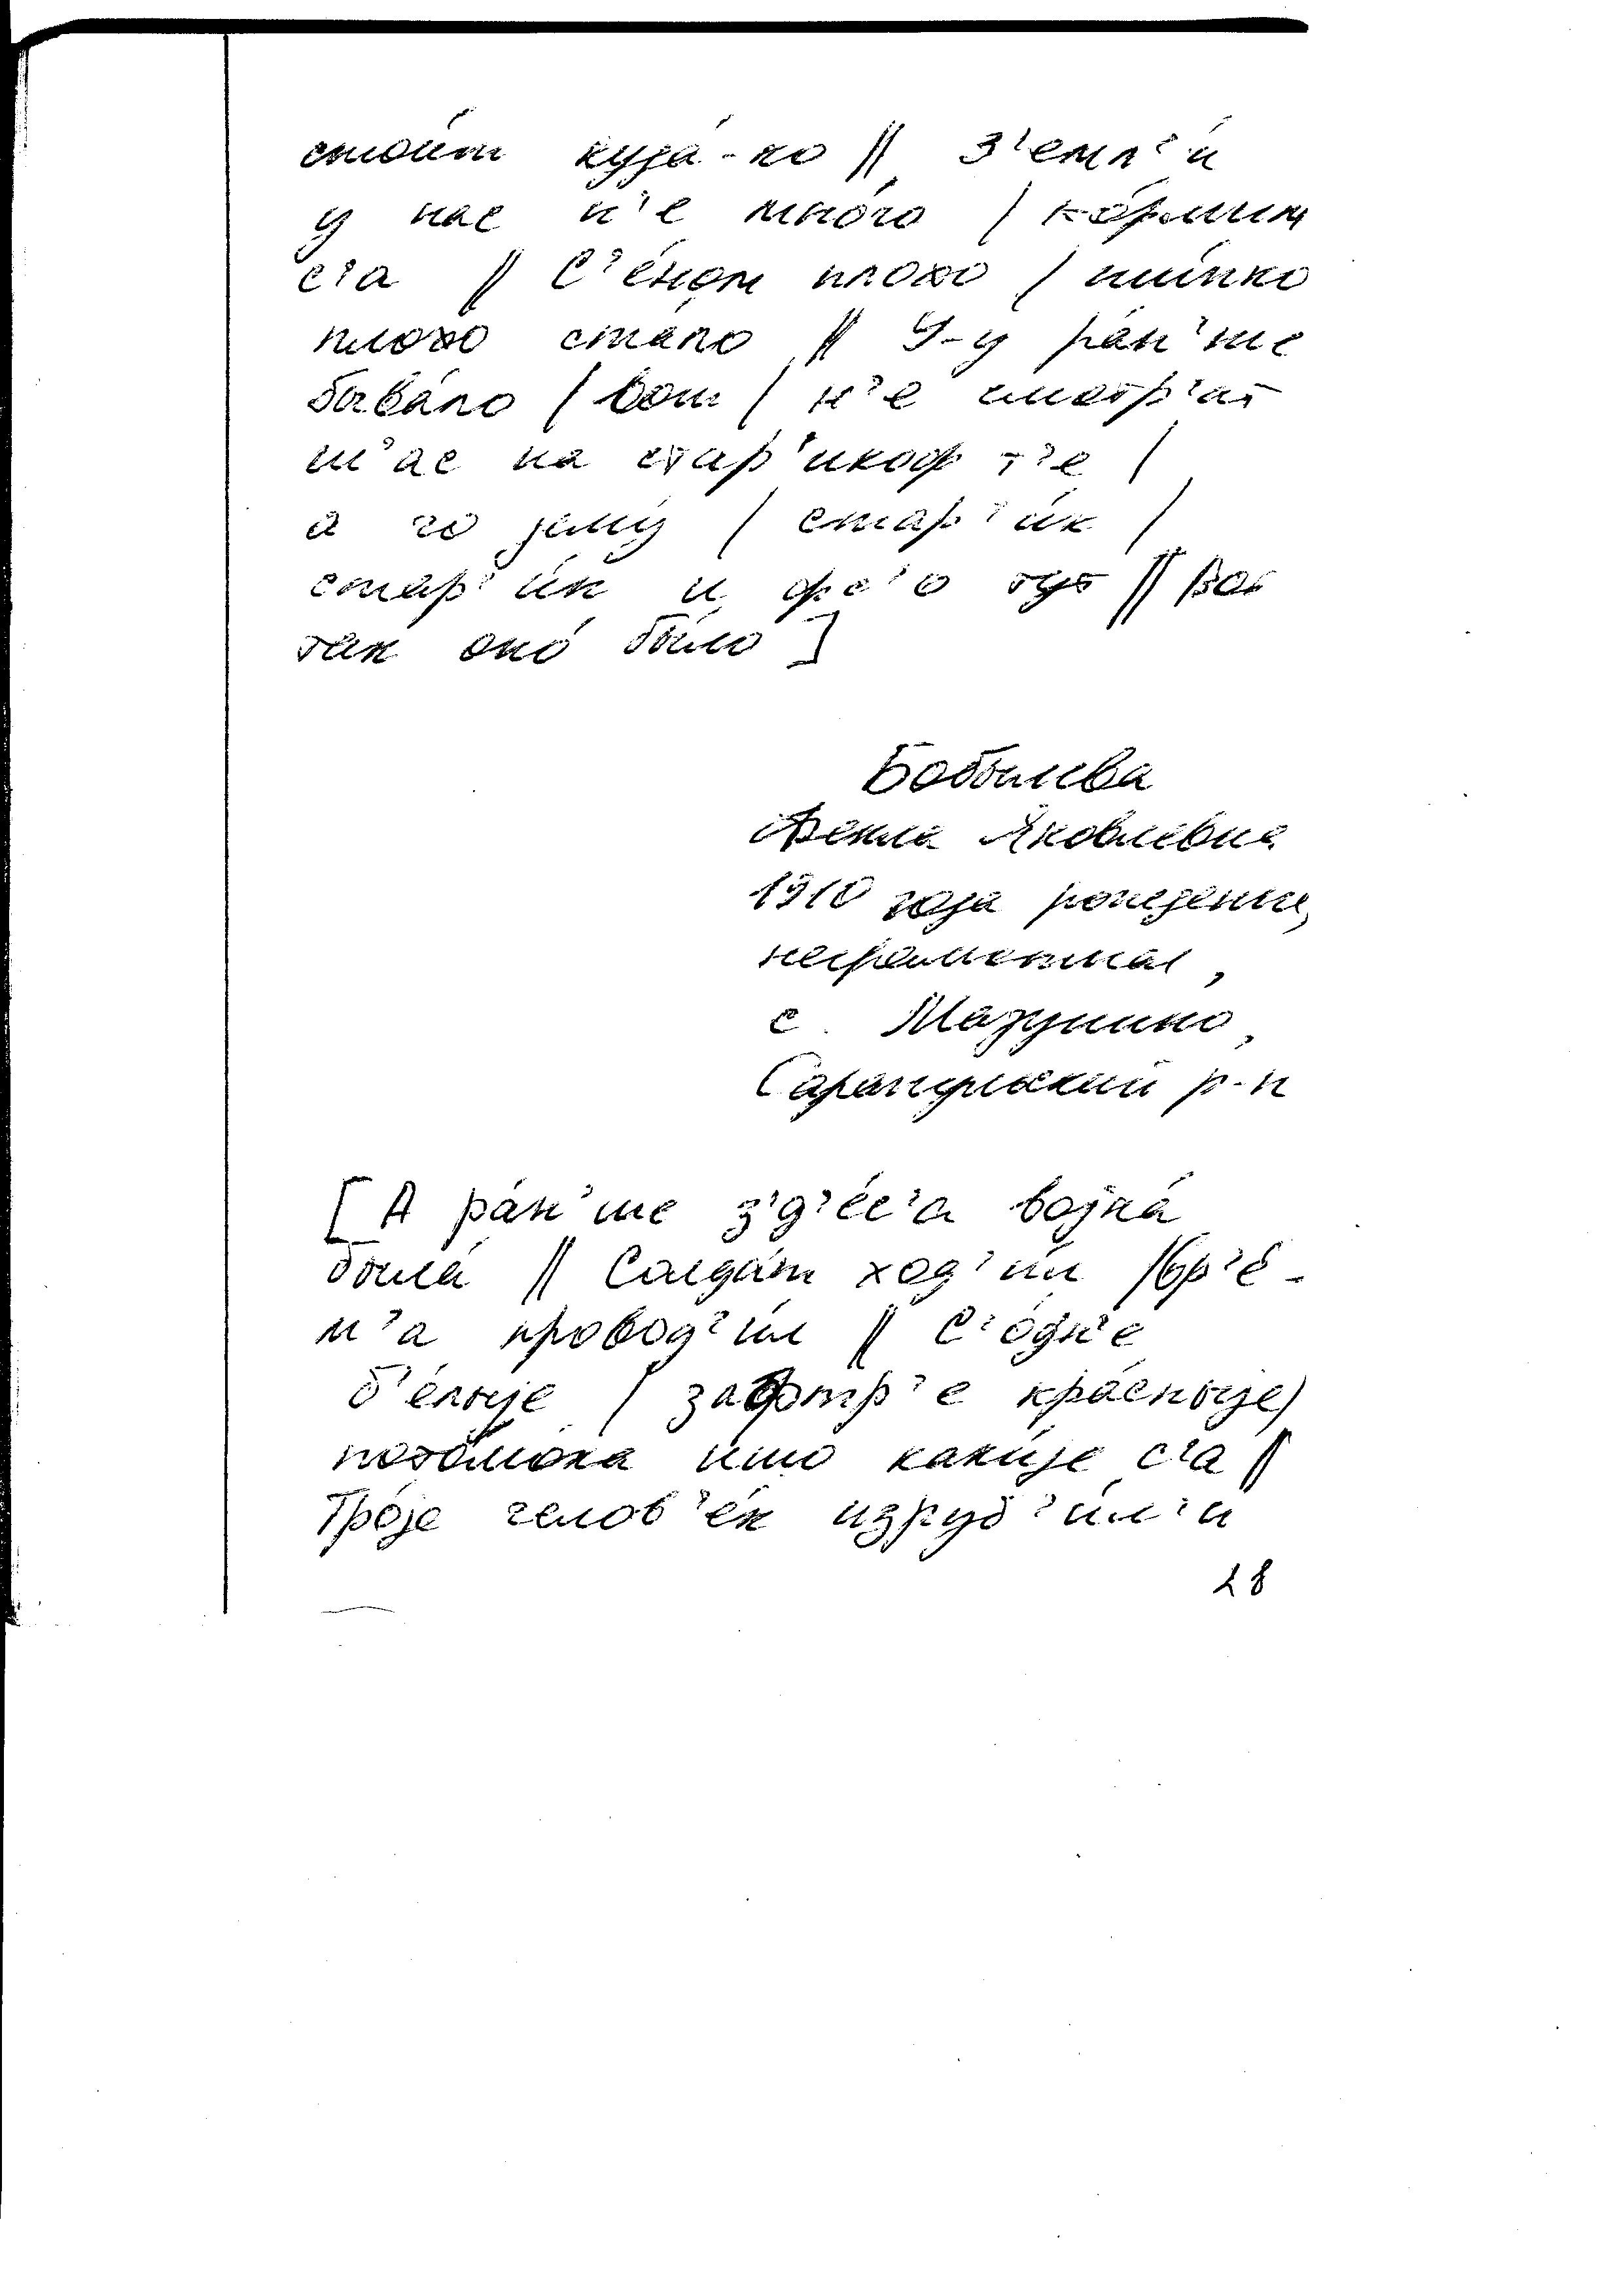 стои́т куда́-ко // З'емл'и́
у нас н'е мно́го / ко́рмим
с'а // С'е́ном плохо / ши́пко
плохо ста́ло // У-у ра́н'ше
быва́ло / вот / н'е смотр'ат
ш'ас на стар'икоф т'е /
а чо јему́ / стар'и́к /
стар'и́к и фс'о тут // Вот
так оно́ бы́ло ]
Бобылева
Фекла Яковлевна
1910 года рождения,
неграмотная,
с. Мазунино,
Сарапульский р-н
[ А ра́н'ше з'д'е́с'а војна́
была́ // Солда́т ход'и́л / вр'е́-
м'а провод'и́л // С'о́дн'е
б'е́лыје / за́фтр'е кра́сныје /
што каки́је с'а //
Тро́је челов'е́к изруб'и́л'и
28